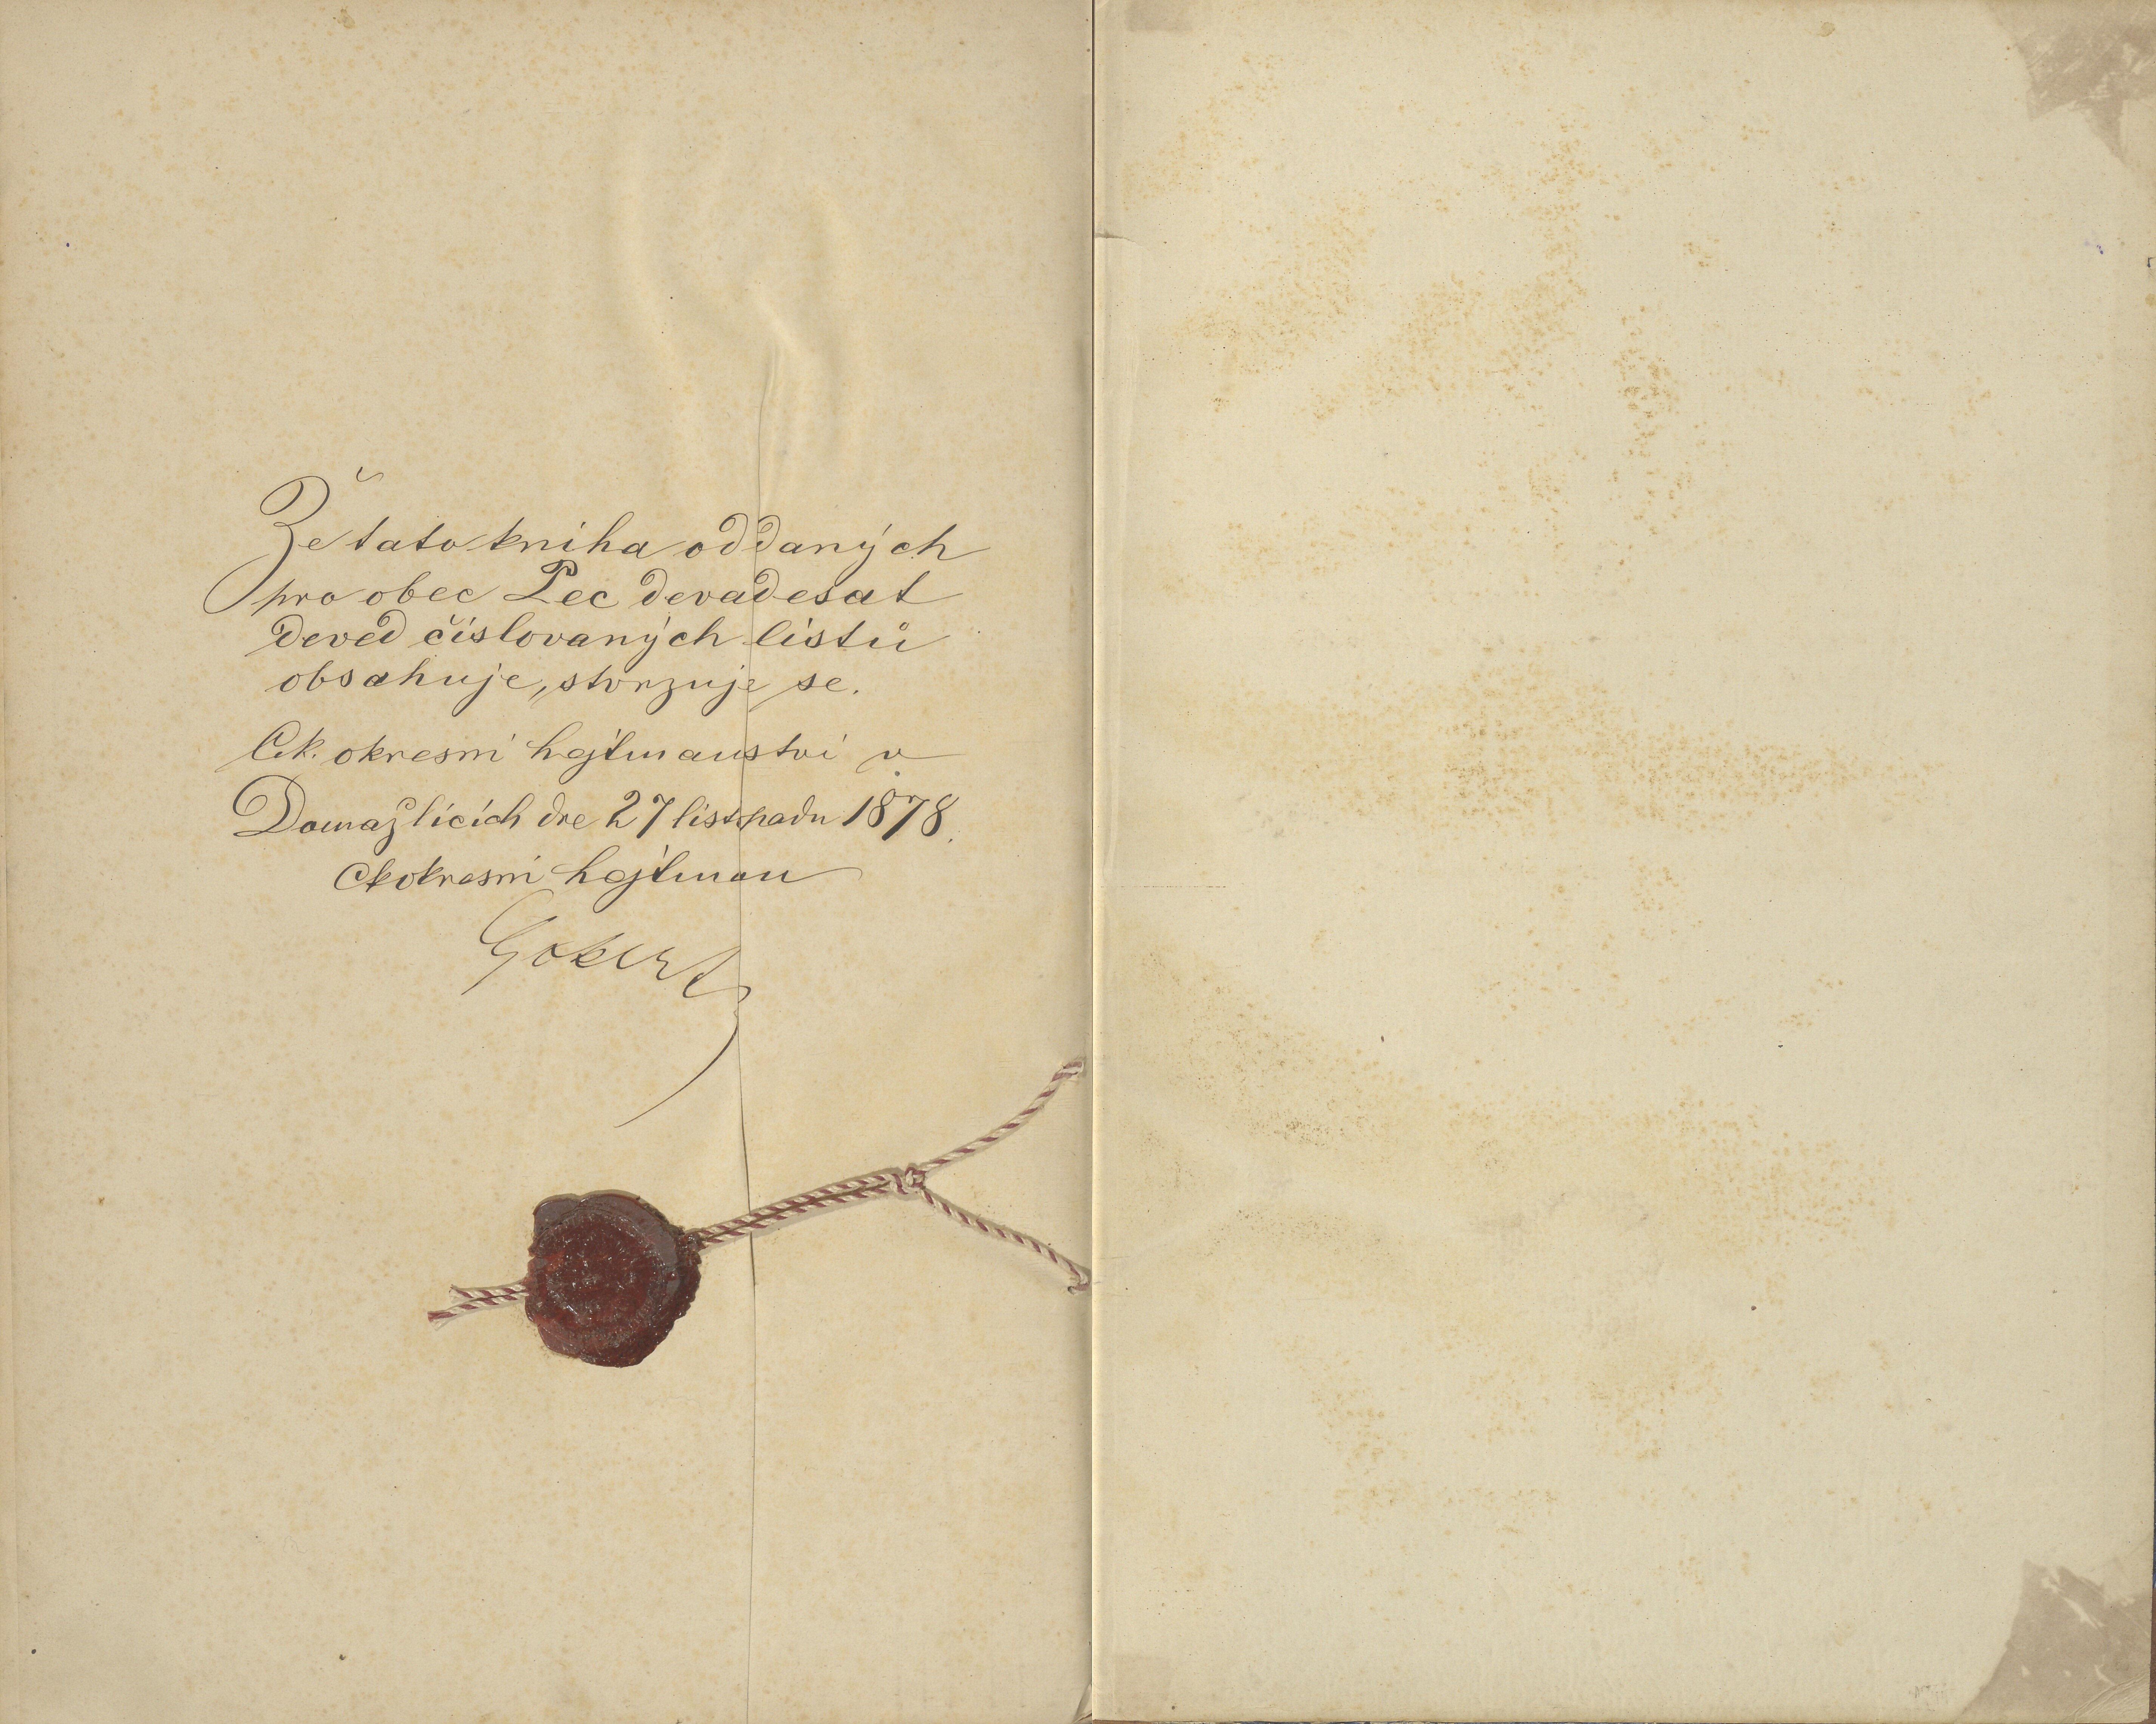 Že tato kniha oddaných
pro obec Pec devadesat
deved číslovaných listů
obsahuje, stvrzuje se.
C.k. okresní hejtmanství v
Domažlicích dne 27 listopadu 1878.
Ck okresní hejtman